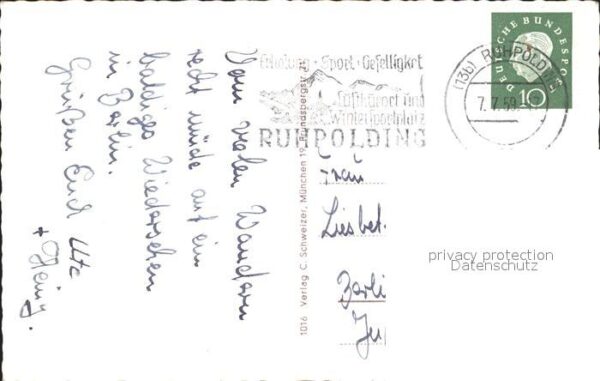 Vom vielen Wandern
recht müde auf ein
baldiges Wiedersehen
in Berlin.
Grüßen Euch Ute
+ Heinz.
1016 Verlag C. Schweizer, München 19
Erholung · Sport · Geselligkeit
Luftkurort und
Wintersportplatz
RUHPOLDING
(13b) RUHPOLDING
7.7.59
DEUTSCHE BUNDESPOST
10
Frau
Liesbet
Berli
privacy protection
Datenschutz